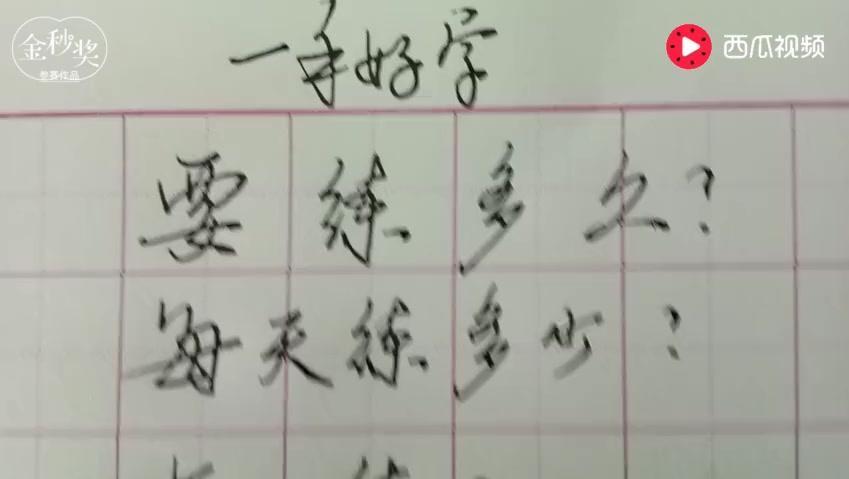 金秒奖
参赛作品
西瓜视频
一手好字
要练多久?
每天练多少?